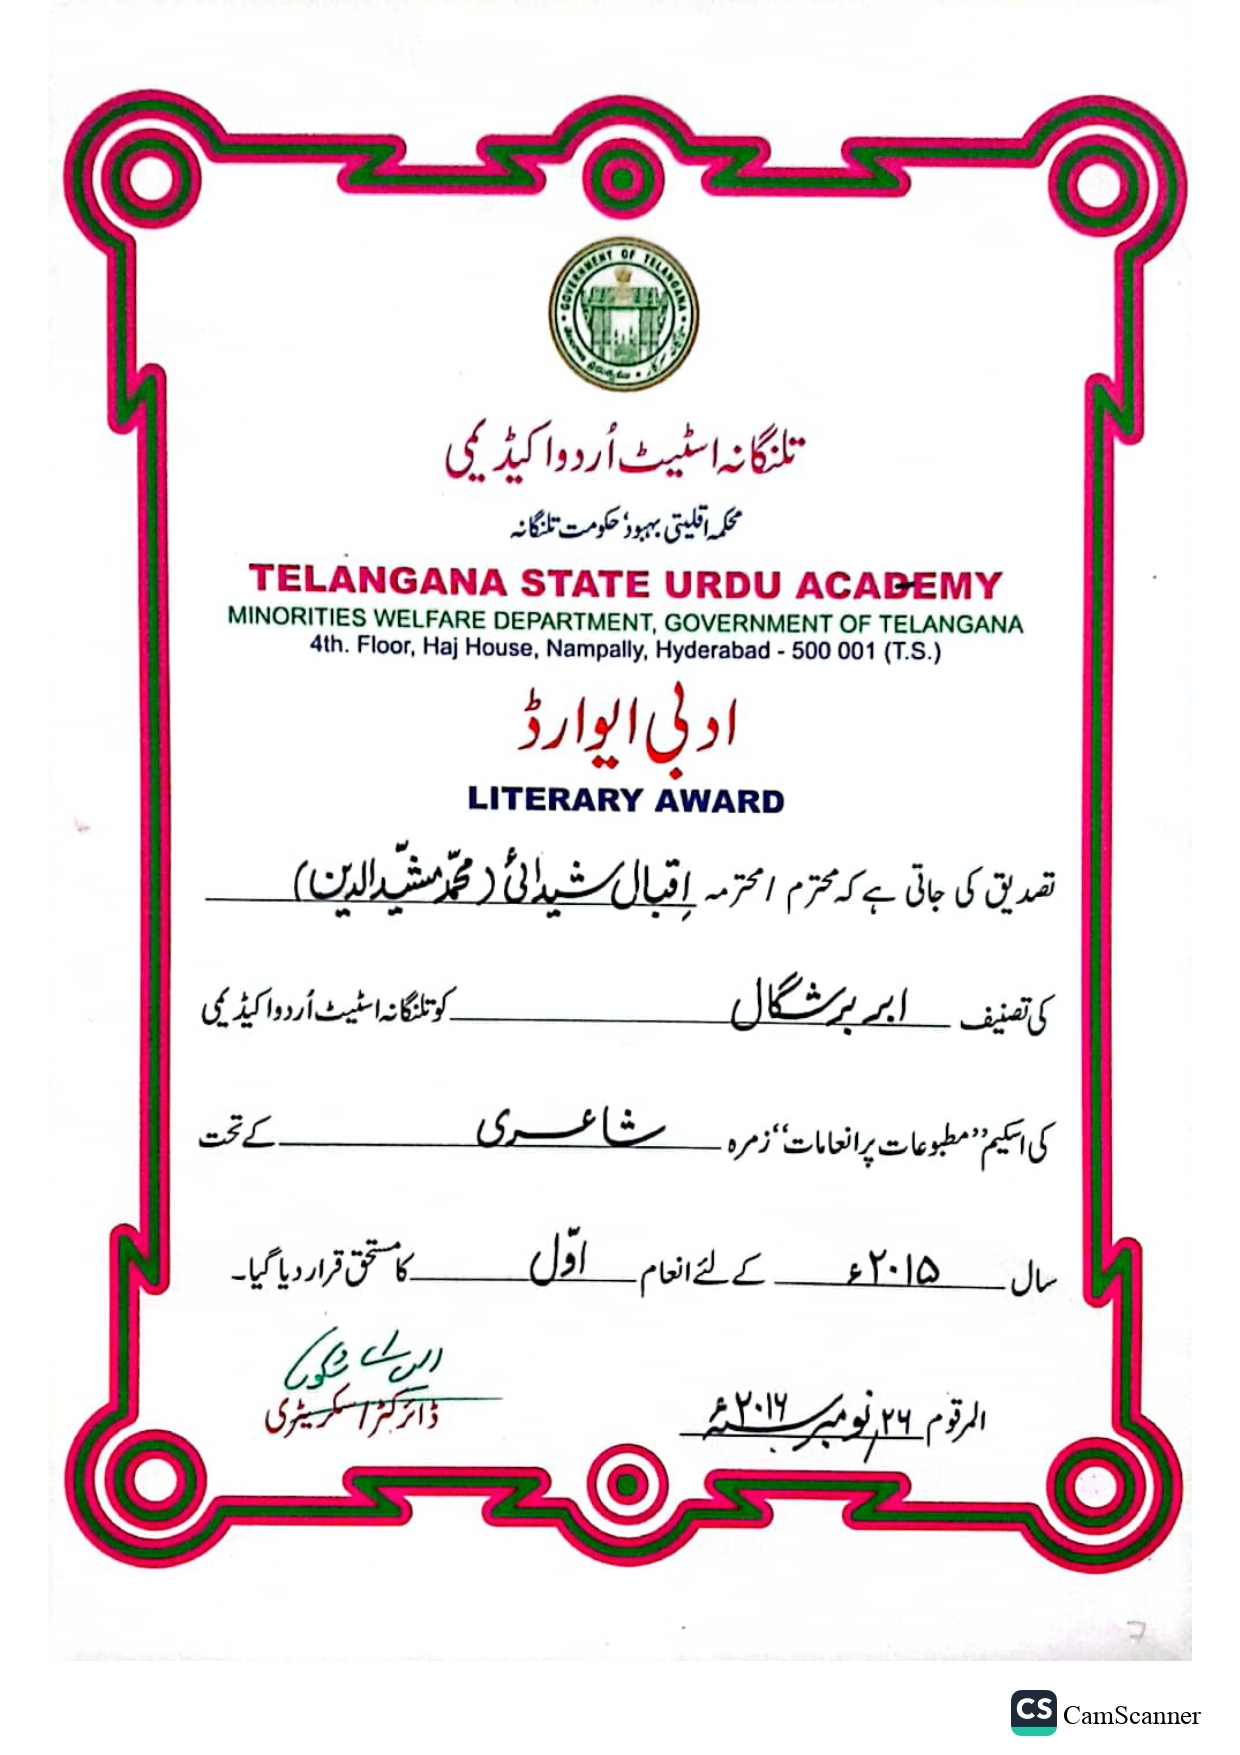 GOVERNMENT OF TELANGANA
تلنگانہ اسٹیٹ اُردو اکیڈیمی
محکمہ اقلیتی بہبود، حکومت تلنگانہ
TELANGANA STATE URDU ACADEMY
MINORITIES WELFARE DEPARTMENT, GOVERNMENT OF TELANGANA
4th. Floor, Haj House, Nampally, Hyderabad - 500 001 (T.S.)
ادبی ایوارڈ
LITERARY AWARD
تصدیق کی جاتی ہے کہ محترم / محترمہ اِقبال شیدائیؔ (محمّد مشیّد الدین)
کی تصنیف ابر برشگال کو تلنگانہ اسٹیٹ اُردو اکیڈیمی
کی اسکیم ”مطبوعات پر انعامات“ زمرہ شاعری کے تحت
سال ۲۰۱۵ء کے لئے انعام اوّل کا مستحق قرار دیا گیا۔
ایس اے شکور
ڈائرکٹر / سکریٹری
المرقوم ۲۶ نومبر ۲۰۱۶ء
CS CamScanner